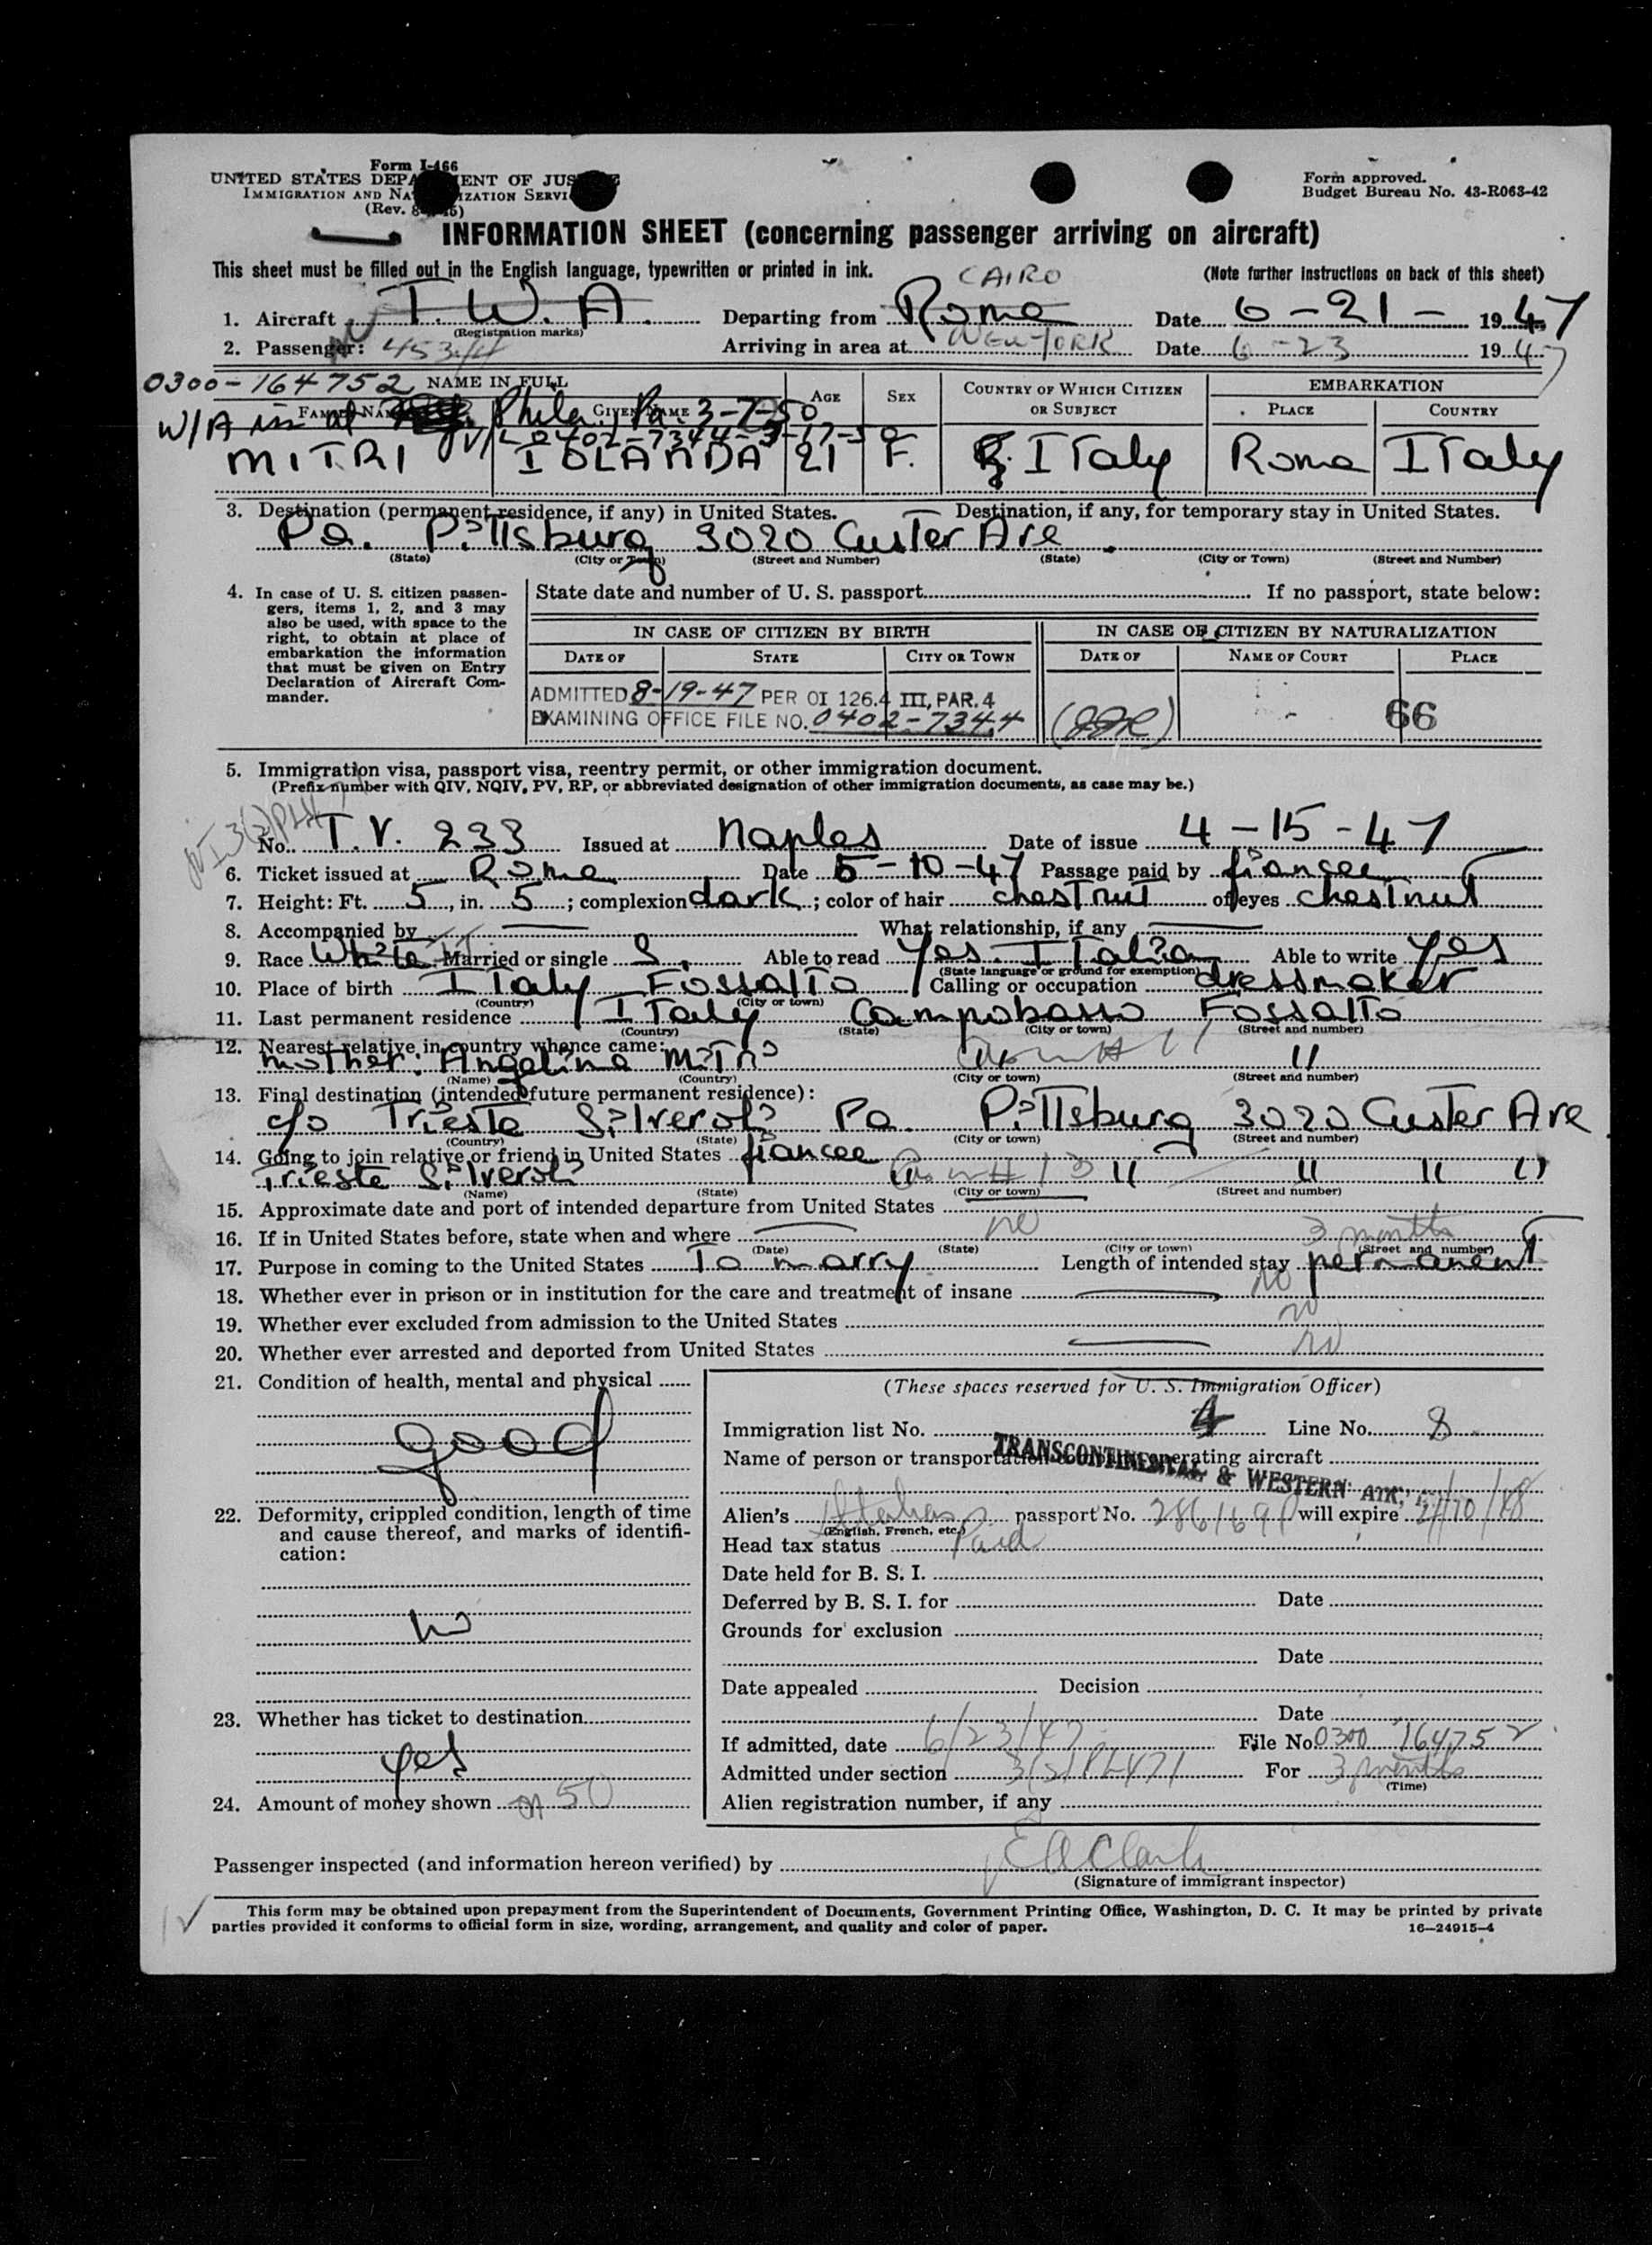 Form I-466
UNITED STATES DEPARTMENT OF JUSTICE
IMMIGRATION AND NATURALIZATION SERVICE
(Rev. 8- -45)
Form approved.
Budget Bureau No. 43-R063-42
INFORMATION SHEET (concerning passenger arriving on aircraft)
This sheet must be filled out in the English language, typewritten or printed in ink.
(Note further instructions on back of this sheet)
CAIRO
1. Aircraft T.W.A. Departing from Rome Date 6-21- 1947
(Registration marks)
2. Passenger: 45344 Arriving in area at NEW YORK Date 6-23 1947
0300-164752 NAME IN FULL
FAMILY NAME GIVEN NAME AGE SEX COUNTRY OF WHICH CITIZEN OR SUBJECT EMBARKATION PLACE COUNTRY
W/A Phila. Pa. 3-7-50
0402-7344
MITRI IOLANDA 21 F. ITaly Roma ITaly
3. Destination (permanent residence, if any) in United States. Destination, if any, for temporary stay in United States.
Pa. PiTTsburg 3020 CusTer Ave
(State) (City or Town) (Street and Number) (State) (City or Town) (Street and Number)
4. In case of U. S. citizen passengers, items 1, 2, and 3 may also be used, with space to the right, to obtain at place of embarkation the information that must be given on Entry Declaration of Aircraft Commander.
State date and number of U. S. passport If no passport, state below:
IN CASE OF CITIZEN BY BIRTH IN CASE OF CITIZEN BY NATURALIZATION
DATE OF STATE CITY OR TOWN DATE OF NAME OF COURT PLACE
ADMITTED 8-19-47 PER OI 126.4 III, PAR. 4
EXAMINING OFFICE FILE NO. 0402-7344 66
5. Immigration visa, passport visa, reentry permit, or other immigration document.
(Prefix number with QIV, NQIV, PV, RP, or abbreviated designation of other immigration documents, as case may be.)
No. T.V. 233 Issued at Naples Date of issue 4-15-47
6. Ticket issued at Rome Date 5-10-47 Passage paid by fiancee
7. Height: Ft. 5, in. 5; complexion dark; color of hair chesTnuT of eyes chesTnuT
8. Accompanied by What relationship, if any
9. Race White Married or single S. Able to read Yes. ITalian Able to write yes
(State language or ground for exemption)
10. Place of birth ITaly FossalTo Calling or occupation dressmaker
(Country) (City or town)
11. Last permanent residence ITaly Campobasso FossalTo
(Country) (State) (City or town) (Street and number)
12. Nearest relative in country whence came:
mother: Angelina MiTri 11 "
(Name) (Country) (City or town) (Street and number)
13. Final destination (intended future permanent residence):
c/o TriesTe Silveroli Pa. PiTTsburg 3020 CusTer Ave
(Country) (State) (City or town) (Street and number)
14. Going to join relative or friend in United States fiancee
TriesTe Silveroli 13 " " " "
(Name) (State) (City or town) (Street and number)
15. Approximate date and port of intended departure from United States
16. If in United States before, state when and where no 3 months
(Date) (State) (City or town) (Street and number)
17. Purpose in coming to the United States To marry Length of intended stay permanenT
18. Whether ever in prison or in institution for the care and treatment of insane no
19. Whether ever excluded from admission to the United States no
20. Whether ever arrested and deported from United States no
21. Condition of health, mental and physical
good
22. Deformity, crippled condition, length of time and cause thereof, and marks of identification:
no
23. Whether has ticket to destination
yes
24. Amount of money shown 50
(These spaces reserved for U. S. Immigration Officer)
Immigration list No. 4 Line No. 8
Name of person or transportation company operating aircraft
TRANSCONTINENTAL & WESTERN AIR,
Alien's Italian passport No. 286169P will expire 2/10/48
(English, French, etc.)
Head tax status Paid
Date held for B. S. I.
Deferred by B. S. I. for Date
Grounds for exclusion
Date
Date appealed Decision
Date
If admitted, date 6/23/47 File No. 0300 164752
Admitted under section 3(2) PL 471 For 3 months
(Time)
Alien registration number, if any
Passenger inspected (and information hereon verified) by E A Clark
(Signature of immigrant inspector)
This form may be obtained upon prepayment from the Superintendent of Documents, Government Printing Office, Washington, D. C. It may be printed by private
parties provided it conforms to official form in size, wording, arrangement, and quality and color of paper. 16—24915-4